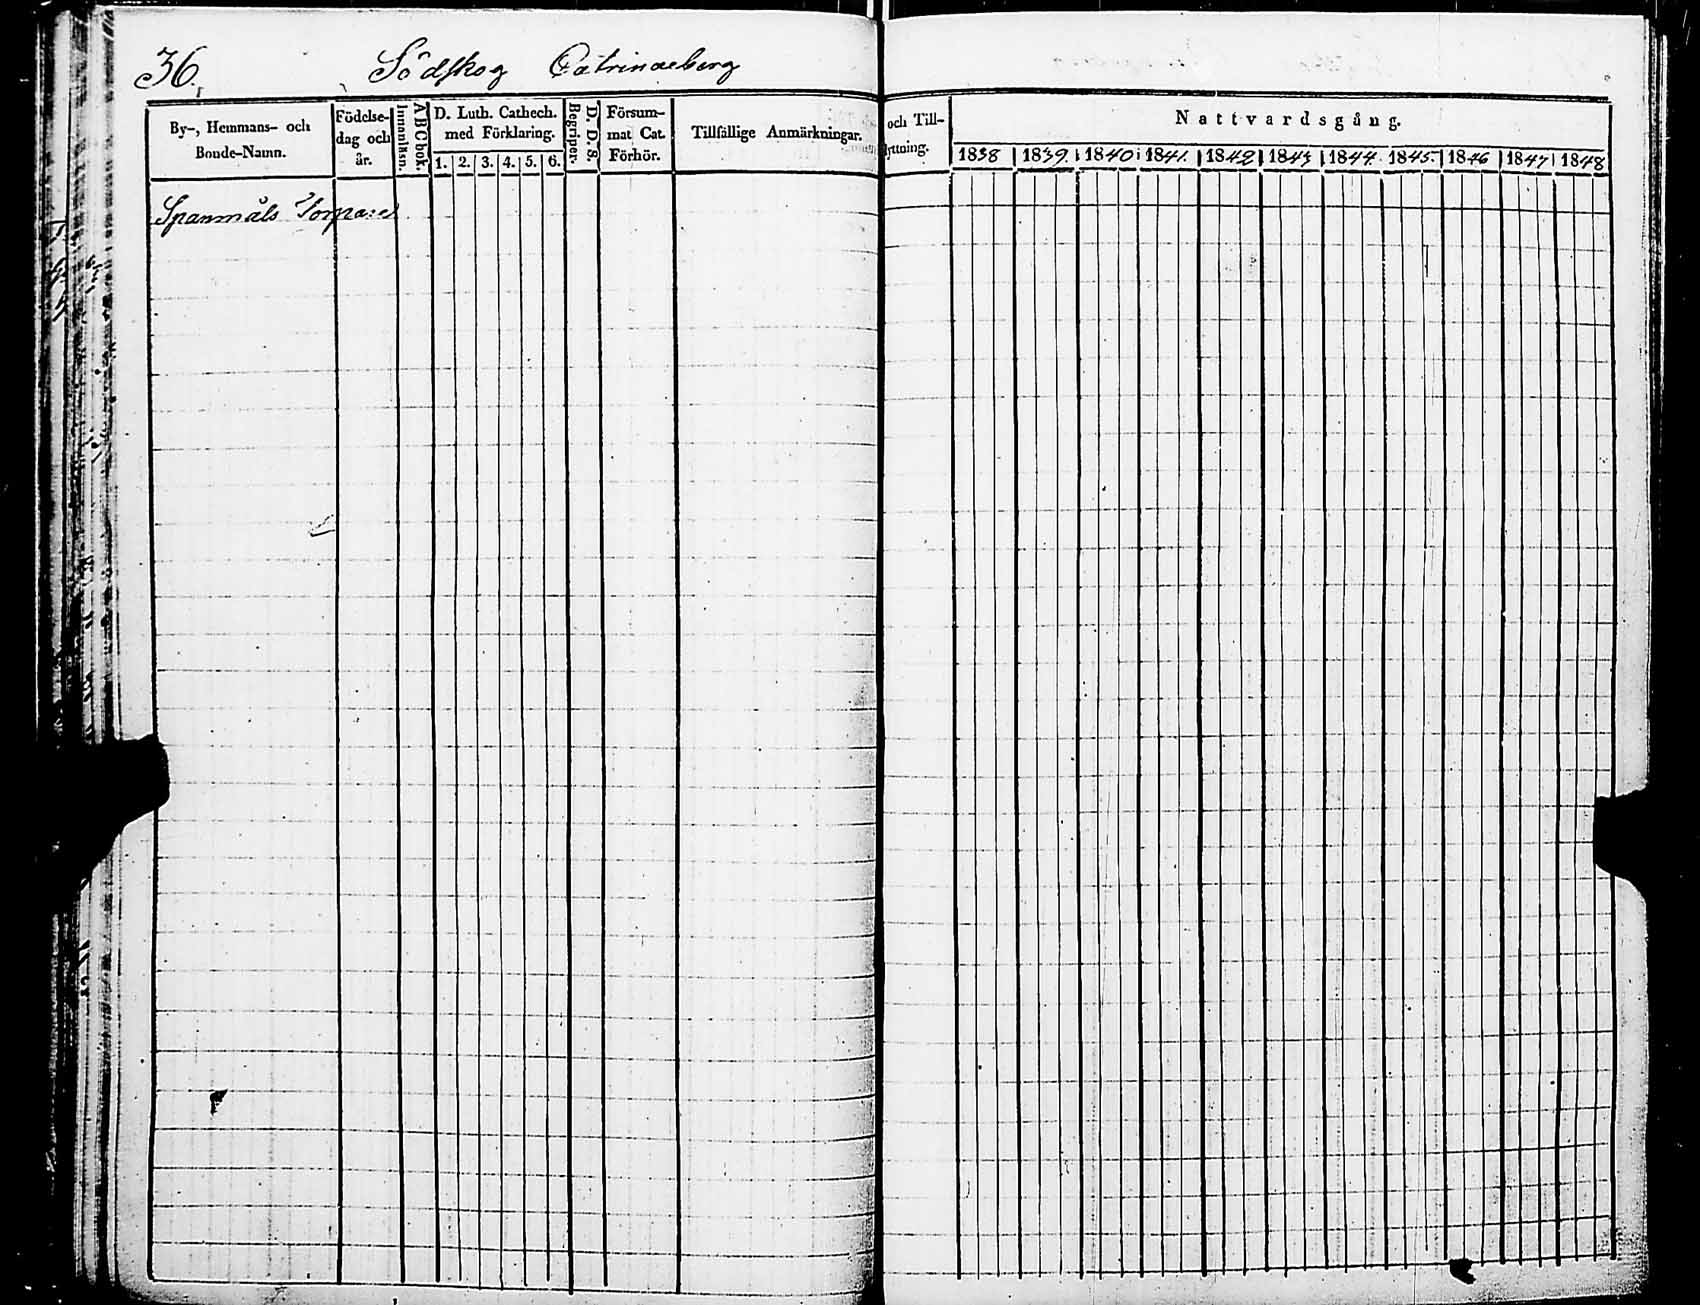 36. Södskog Catrinaeberg
By-, Hemmans- och Bonde-Namn.
Födelse-dag och år.
Innanläsn.
ABCbok.
D. Luth. Cathech. med Förklaring.
1. 2. 3. 4. 5. 6.
Begriper.
D. D. S.
Försum-mat Cat. Förhör.
Tillfällige Anmärkningar.
och Till-
lyttning.
Nattvardsgång.
1838 1839. 1840 1841. 1842 1843 1844 1845. 1846 1847 1848
Spanmåls Torpare